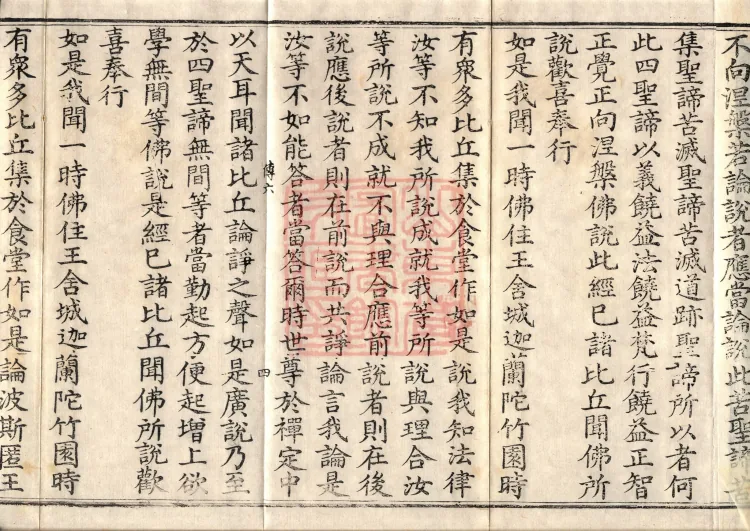 不向涅槃若論說者應當論說此苦聖諦苦
集聖諦苦滅聖諦苦滅道跡聖諦所以者何
此四聖諦以義饒益法饒益梵行饒益正智
正覺正向涅槃佛說此經已諸比丘聞佛所
說歡喜奉行
如是我聞一時佛住王舍城迦蘭陀竹園時
有衆多比丘集於食堂作如是說我知法律
汝等不知我所說成就我等所說與理合汝
等所說不成就不與理合應前說者則在後
說應後說者則在前說而共諍論言我論是
汝等不如能答者當答爾時世尊於禪定中
傅六
四
以天耳聞諸比丘論諍之聲如是廣說乃至
於四聖諦無間等者當勤起方便起增上欲
學無間等佛說是經已諸比丘聞佛所說歡
喜奉行
如是我聞一時佛住王舍城迦蘭陀竹園時
有衆多比丘集於食堂作如是論波斯匿王